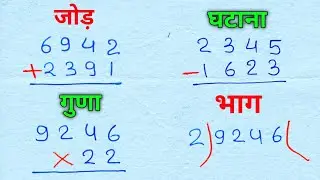 जोड़
6942
+2391
घटाना
2345
-1623
गुणा
9246
×22
भाग
2)9246(